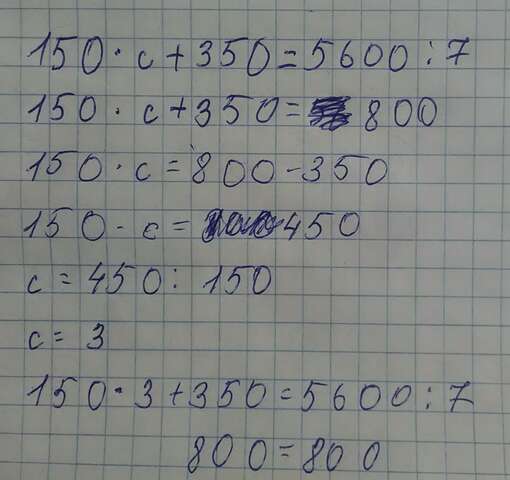 150 · c + 350 = 5600 : 7
150 · c + 350 = 800
150 · c = 800 - 350
150 · c = 450
c = 450 : 150
c = 3
150 · 3 + 350 = 5600 : 7
800 = 800